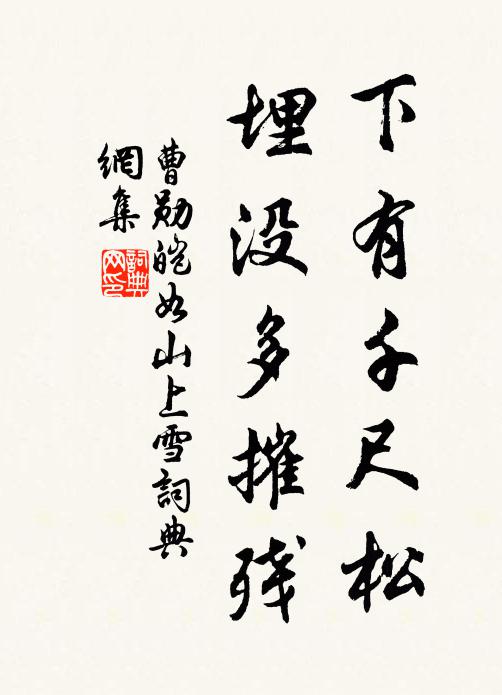 下有千尺松
埋没多摧残
曹勋皑如山上雪词典
網集
詞典
网印